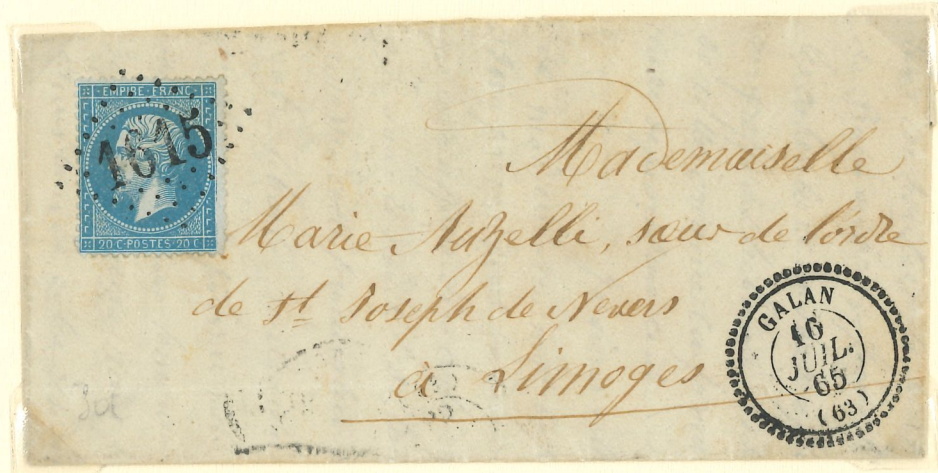 EMPIRE FRANC
1615
20 C POSTES 20 C
Mademoiselle
Marie Auzelli, sœur de l'ordre
de St Joseph de Nevers
à Limoges
GALAN
16
JUIL.
65
(63)